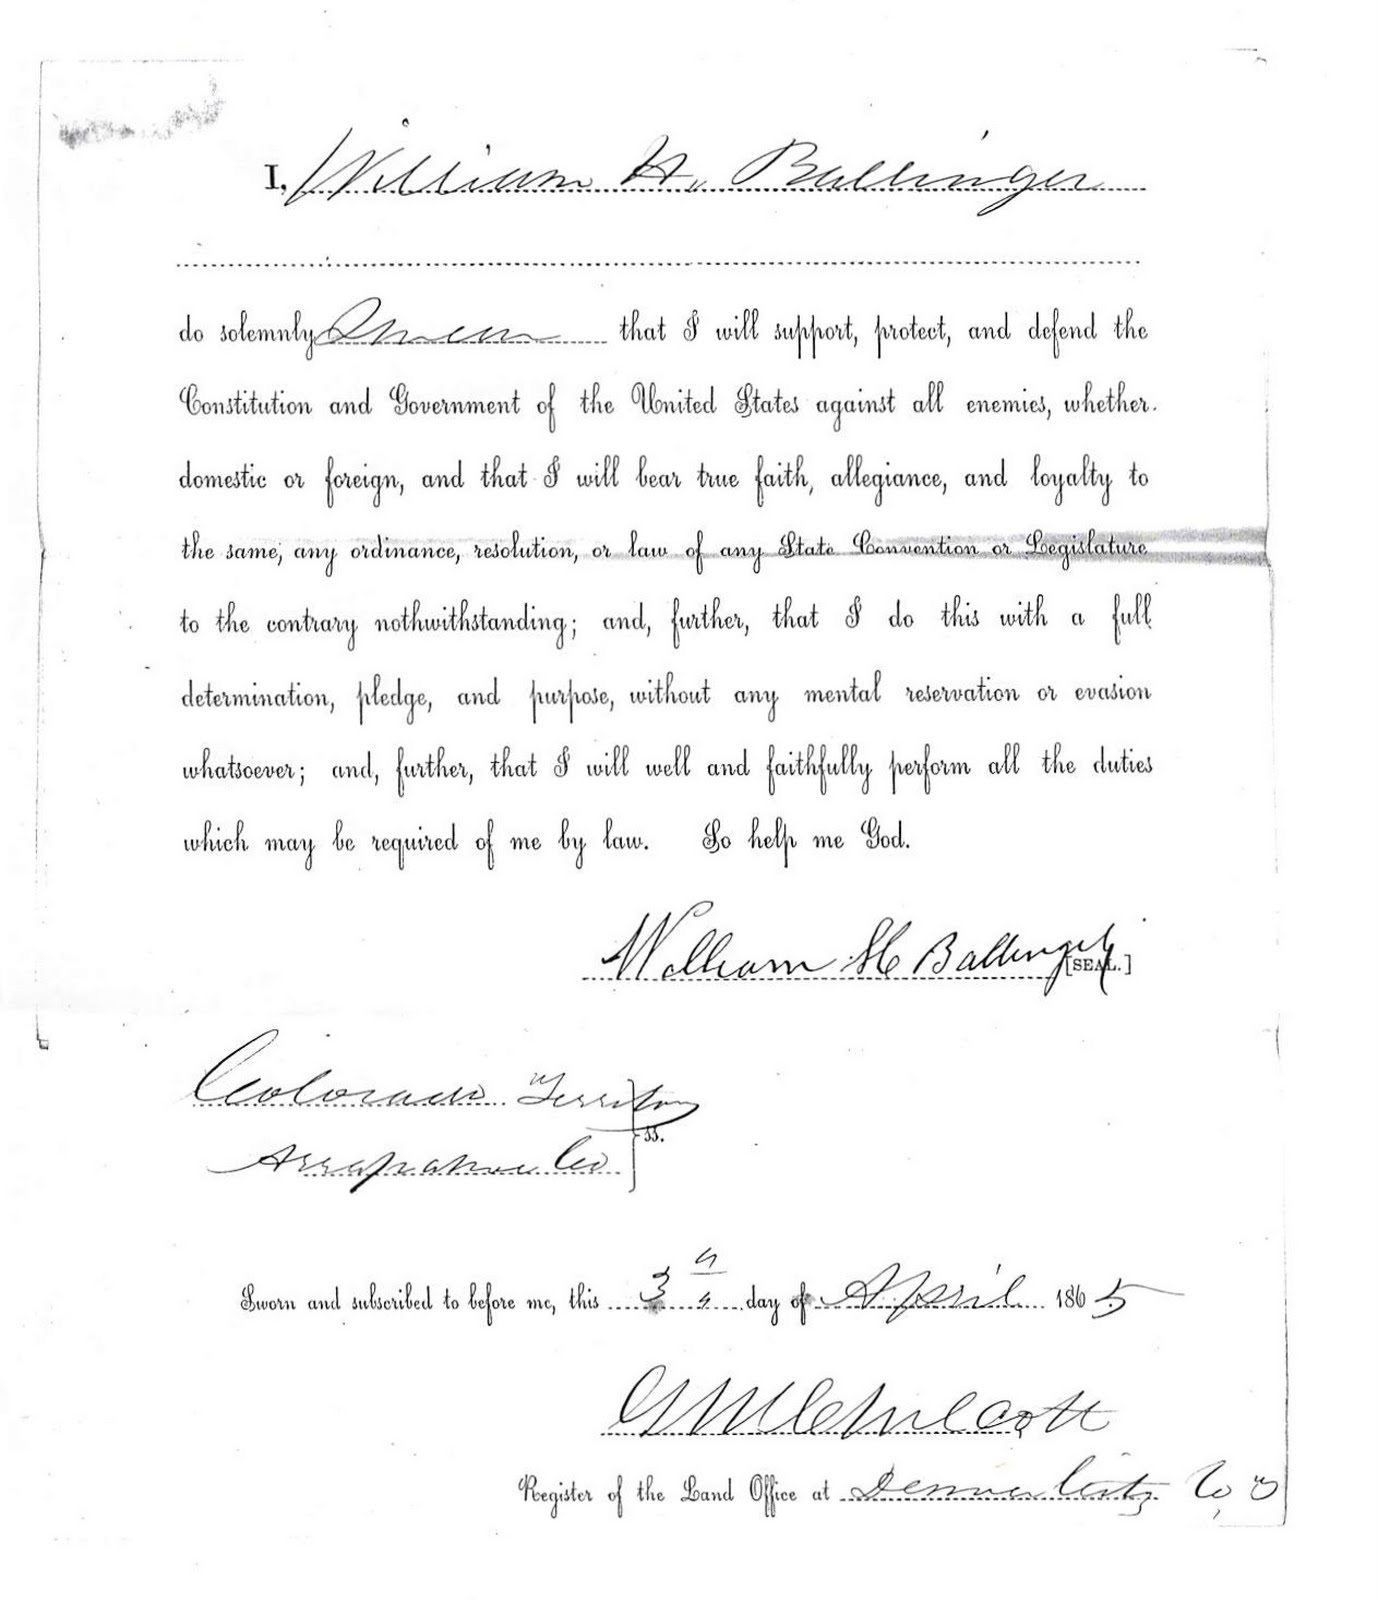 I, William H. Ballinger
do solemnly Swear that I will support, protect, and defend the
Constitution and Government of the United States against all enemies, whether
domestic or foreign, and that I will bear true faith, allegiance, and loyalty to
the same, any ordinance, resolution, or law of any State Convention or Legislature
to the contrary nothwithstanding; and, further, that I do this with a full
determination, pledge, and purpose, without any mental reservation or evasion
whatsoever; and, further, that I will well and faithfully perform all the duties
which may be required of me by law. So help me God.
William H Ballinger [SEAL.]
Colorado Territory
Arrapahoe Co ss.
Sworn and subscribed to before me, this 3 day of April 1865
Register of the Land Office at Denver City